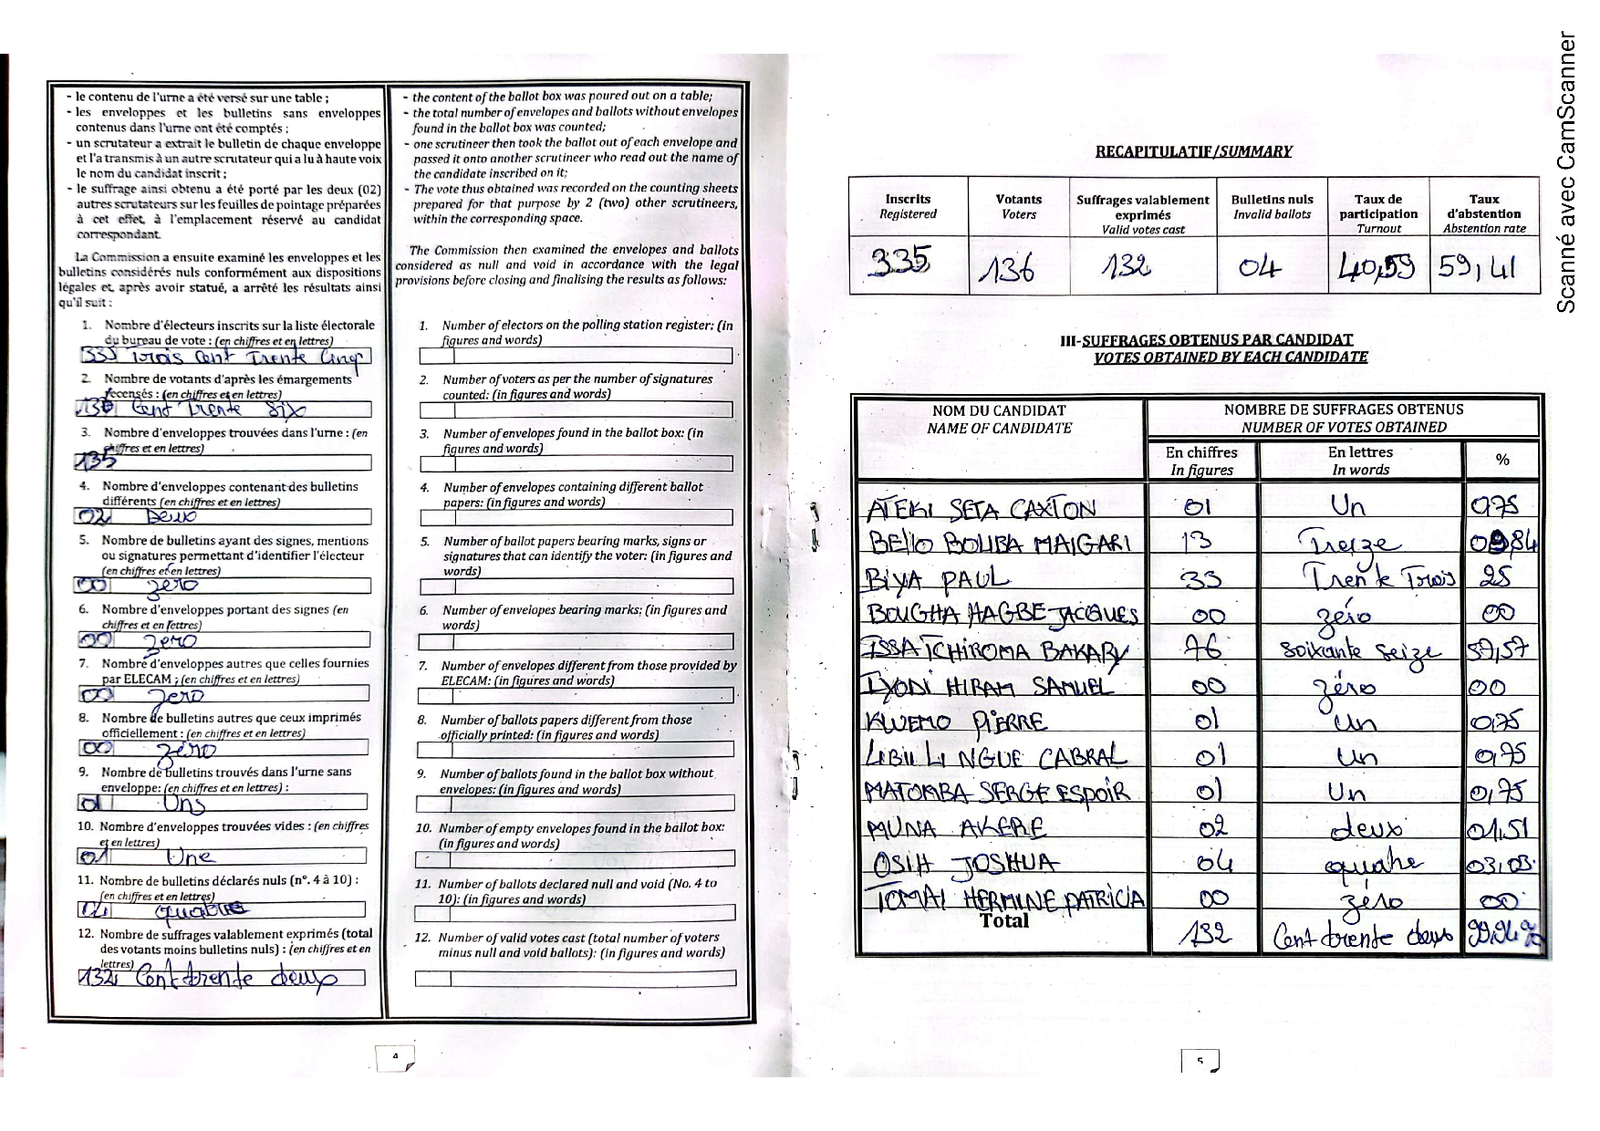 - le contenu de l'urne a été versé sur une table ;
- les enveloppes et les bulletins sans enveloppes
contenus dans l'urne ont été comptés ;
- un scrutateur a extrait le bulletin de chaque enveloppe
et l'a transmis à un autre scrutateur qui a lu à haute voix
le nom du candidat inscrit ;
- le suffrage ainsi obtenu a été porté par les deux (02)
autres scrutateurs sur les feuilles de pointage préparées
à cet effet, à l'emplacement réservé au candidat
correspondant.
La Commission a ensuite examiné les enveloppes et les
bulletins considérés nuls conformément aux dispositions
légales et, après avoir statué, a arrêté les résultats ainsi
qu'il suit :
1. Nombre d'électeurs inscrits sur la liste électorale
du bureau de vote : (en chiffres et en lettres)
335 Trois Cent Trente Cinq
2. Nombre de votants d'après les émargements
recensés : (en chiffres et en lettres)
136 Cent Trente Six
3. Nombre d'enveloppes trouvées dans l'urne : (en
chiffres et en lettres)
135
4. Nombre d'enveloppes contenant des bulletins
différents (en chiffres et en lettres)
02 Deux
5. Nombre de bulletins ayant des signes, mentions
ou signatures permettant d'identifier l'électeur
(en chiffres et en lettres)
00 zero
6. Nombre d'enveloppes portant des signes (en
chiffres et en lettres)
00 zero
7. Nombre d'enveloppes autres que celles fournies
par ELECAM ; (en chiffres et en lettres)
00 zero
8. Nombre de bulletins autres que ceux imprimés
officiellement : (en chiffres et en lettres)
00 zéro
9. Nombre de bulletins trouvés dans l'urne sans
enveloppe: (en chiffres et en lettres) :
01 Uns
10. Nombre d'enveloppes trouvées vides : (en chiffres
et en lettres)
01 Une
11. Nombre de bulletins déclarés nuls (n°. 4 à 10) :
(en chiffres et en lettres)
04 quatre
12. Nombre de suffrages valablement exprimés (total
des votants moins bulletins nuls) : (en chiffres et en
lettres)
132 Cent trente deux
- the content of the ballot box was poured out on a table;
- the total number of envelopes and ballots without envelopes
found in the ballot box was counted;
- one scrutineer then took the ballot out of each envelope and
passed it onto another scrutineer who read out the name of
the candidate inscribed on it;
- The vote thus obtained was recorded on the counting sheets
prepared for that purpose by 2 (two) other scrutineers,
within the corresponding space.
The Commission then examined the envelopes and ballots
considered as null and void in accordance with the legal
provisions before closing and finalising the results as follows:
1. Number of electors on the polling station register: (in
figures and words)
2. Number of voters as per the number of signatures
counted: (in figures and words)
3. Number of envelopes found in the ballot box: (in
figures and words)
4. Number of envelopes containing different ballot
papers: (in figures and words)
5. Number of ballot papers bearing marks, signs or
signatures that can identify the voter: (in figures and
words)
6. Number of envelopes bearing marks: (in figures and
words)
7. Number of envelopes different from those provided by
ELECAM: (in figures and words)
8. Number of ballots papers different from those
officially printed: (in figures and words)
9. Number of ballots found in the ballot box without
envelopes: (in figures and words)
10. Number of empty envelopes found in the ballot box:
(in figures and words)
11. Number of ballots declared null and void (No. 4 to
10): (in figures and words)
12. Number of valid votes cast (total number of voters
minus null and void ballots): (in figures and words)
4
RECAPITULATIF/SUMMARY
Inscrits Votants Suffrages valablement exprimés Bulletins nuls Taux de participation Taux d'abstention
Registered Voters Valid votes cast Invalid ballots Turnout Abstention rate
335 136 132 04 40,59 59,41
III-SUFFRAGES OBTENUS PAR CANDIDAT
VOTES OBTAINED BY EACH CANDIDATE
NOM DU CANDIDAT NOMBRE DE SUFFRAGES OBTENUS
NAME OF CANDIDATE NUMBER OF VOTES OBTAINED
En chiffres En lettres %
In figures In words
ATEKI SETA CAXTON 01 Un 0,75
BELLO BOUBA MAIGARI 13 Treize 09,84
BIYA PAUL 33 Trente Trois 25
BOUGHA HAGBE JACQUES 00 zéro 00
ISSA TCHIROMA BAKARY 76 Soixante Seize 57,57
IYODI HIRAM SAMUEL 00 zéro 00
KWEMO PIERRE 01 un 0,75
LIBII LI NGUE CABRAL 01 Un 0,75
MATOMBA SERGE ESPOIR 01 Un 0,75
MUNA AKERE 02 deux 01,51
OSIH JOSHUA 04 quatre 03,03
TOMAI HERMINE PATRICIA 00 zéro 00
Total 132 Cent trente deux 99,94%
5
Scanné avec CamScanner